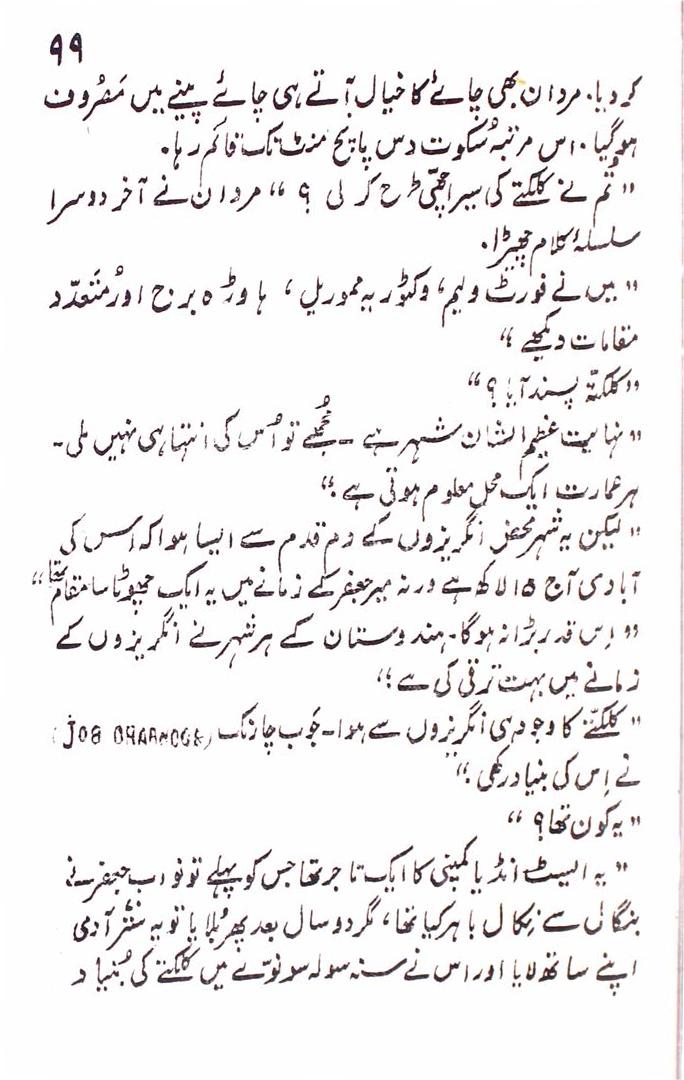 ۹۹
کر دیا۔ مردان بھی چائے کا خیال آتے ہی چائے پینے میں مَصُروف
ہو گیا۔ اس مرتبہ سُکوت دس پانچ منٹ تک قائم رہا۔
”تُم نے کلکتے کی سیر اچھّی طرح کر لی ؟“ مردان نے آخر دوسرا
سلسلۂ کلام چھیڑا۔
”میں نے فورٹ ولیم، وکٹوریہ میموریل، ہاوڑہ برج اور مُتَعدّد
مقامات دیکھے“
”کلکتّہ پسند آیا؟“
”نہایت عظیم الشان شہر ہے ۔ مُجھے تو اُس کی انتہا ہی نہیں ملی۔
ہر عمارت ایک محل معلوم ہوتی ہے۔“
”لیکن یہ شہر محض انگریزوں کے دم قدم سے ایسا ہوا کہ اِس کی
آبادی آج ۱۵ لاکھ ہے ورنہ میر جعفر کے زمانے میں یہ ایک چھوٹا سا مقام تھا“
”اِس قدر بڑا نہ ہوگا۔ ہندوستان کے ہر شہر نے انگریزوں کے
زمانے میں بہت ترقی کی ہے؛“
”کلکتّے کا وجود ہی انگریزوں سے ہوا۔ جَوب چارنک (JOB CHARNOCK)
نے اِس کی بنیاد رکھی۔“
”یہ کون تھا؟“
”یہ ایسٹ انڈیا کمپنی کا ایک تاجر تھا جس کو پہلے تو نواب جعفر نے
بنگال سے نِکال باہر کیا تھا، مگر دو سال بعد پھر بُلایا تو یہ سَتّر آدمی
اپنے ساتھ لایا اور اس نے سنہ سولہ سو نوّے میں کلکتے کی بُنیاد